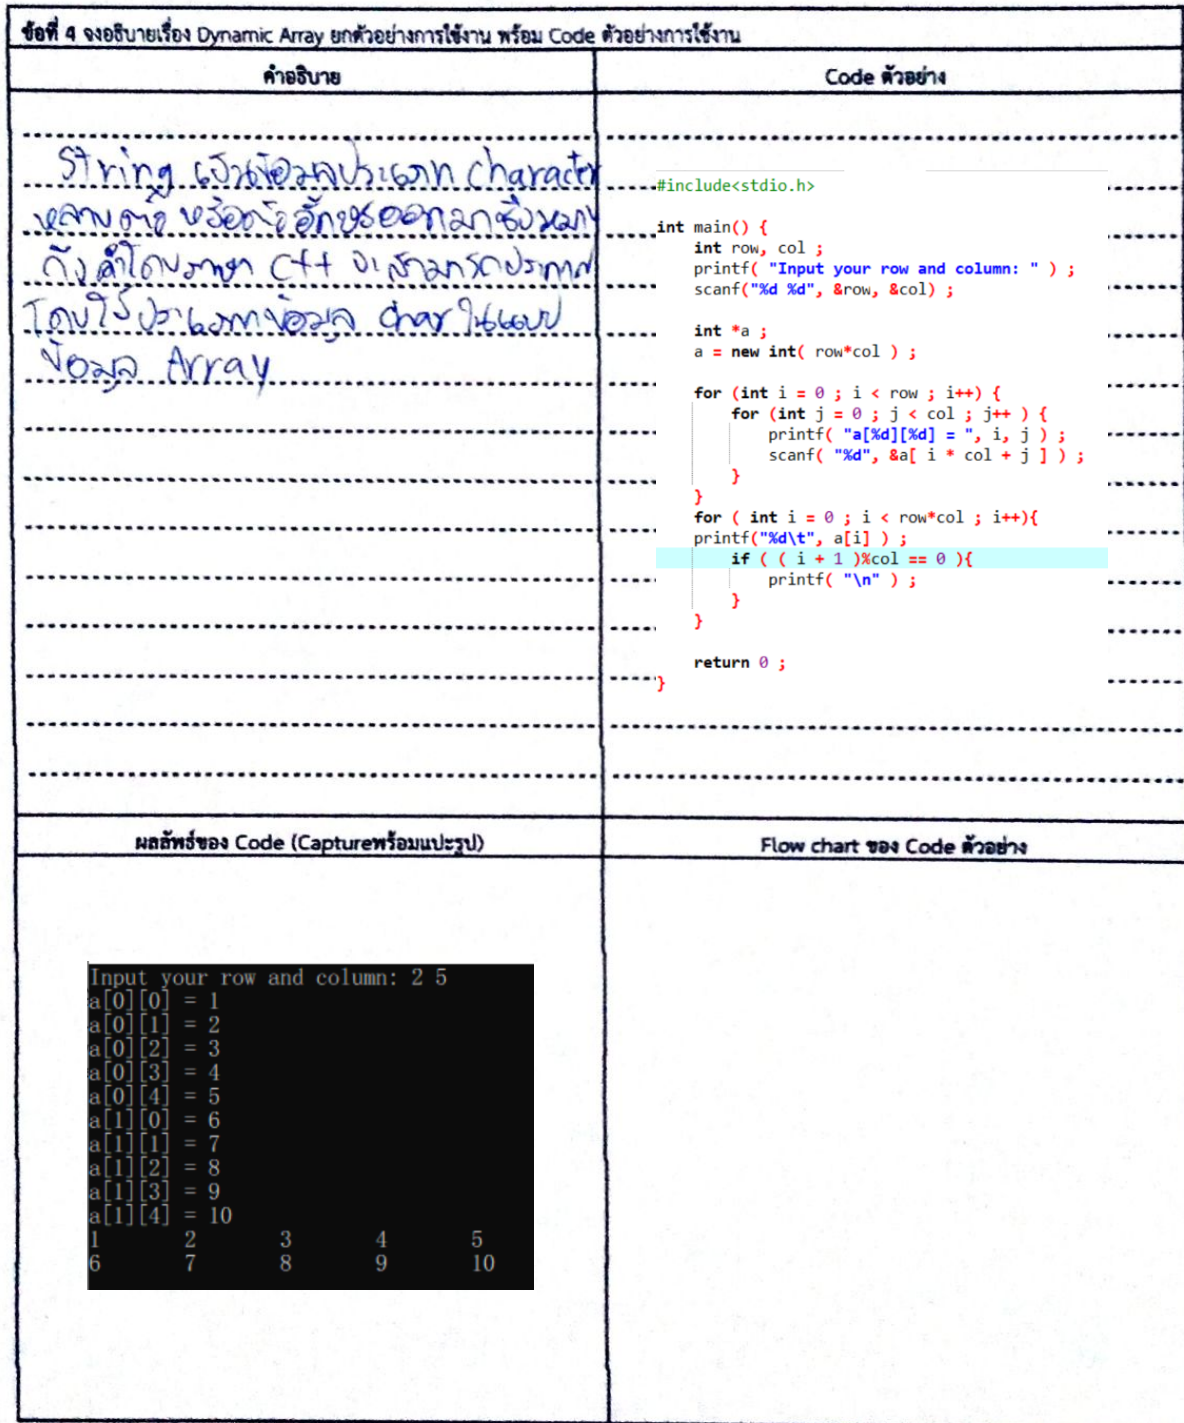 ข้อที่ 4 จงอธิบายเรื่อง Dynamic Array ยกตัวอย่างการใช้งาน พร้อม Code ตัวอย่างการใช้งาน
คำอธิบาย
String เป็นข้อมูลประเภท character
หลายตัว หรือตัวอักษรออกมาซึ่งหมาย
ถึง คำโดยภาษา C++ จะสามารถประกาศ
โดยใช้ประเภทข้อมูล char ในแบบ
ข้อมูล Array
Code ตัวอย่าง
#include<stdio.h>
int main() {
int row, col ;
printf( "Input your row and column: " ) ;
scanf("%d %d", &row, &col) ;
int *a ;
a = new int( row*col ) ;
for (int i = 0 ; i < row ; i++) {
for (int j = 0 ; j < col ; j++ ) {
printf( "a[%d][%d] = ", i, j ) ;
scanf( "%d", &a[ i * col + j ] ) ;
}
}
for ( int i = 0 ; i < row*col ; i++){
printf("%d\t", a[i] ) ;
if ( ( i + 1 )%col == 0 ){
printf( "\n" ) ;
}
}
return 0 ;
}
ผลลัพธ์ของ Code (Captureพร้อมแปะรูป)
Input your row and column: 2 5
a[0][0] = 1
a[0][1] = 2
a[0][2] = 3
a[0][3] = 4
a[0][4] = 5
a[1][0] = 6
a[1][1] = 7
a[1][2] = 8
a[1][3] = 9
a[1][4] = 10
1 2 3 4 5
6 7 8 9 10
Flow chart ของ Code ตัวอย่าง